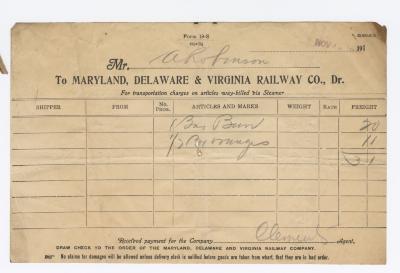 Form 19-S
NOV 191
Mr. A Robinson
To MARYLAND, DELAWARE & VIRGINIA RAILWAY CO., Dr.
For transportation charges on articles way-billed via Steamer
SHIPPER FROM No. PKGS. ARTICLES AND MARKS WEIGHT RATE FREIGHT
1 20
1/2 Bx Oranges 11
31
Received payment for the Company Clements Agent,
DRAW CHECK TO THE ORDER OF THE MARYLAND, DELAWARE AND VIRGINIA RAILWAY COMPANY.
No claims for damages will be allowed unless delivery clerk is notified before goods are taken from wharf, that they are in bad order.